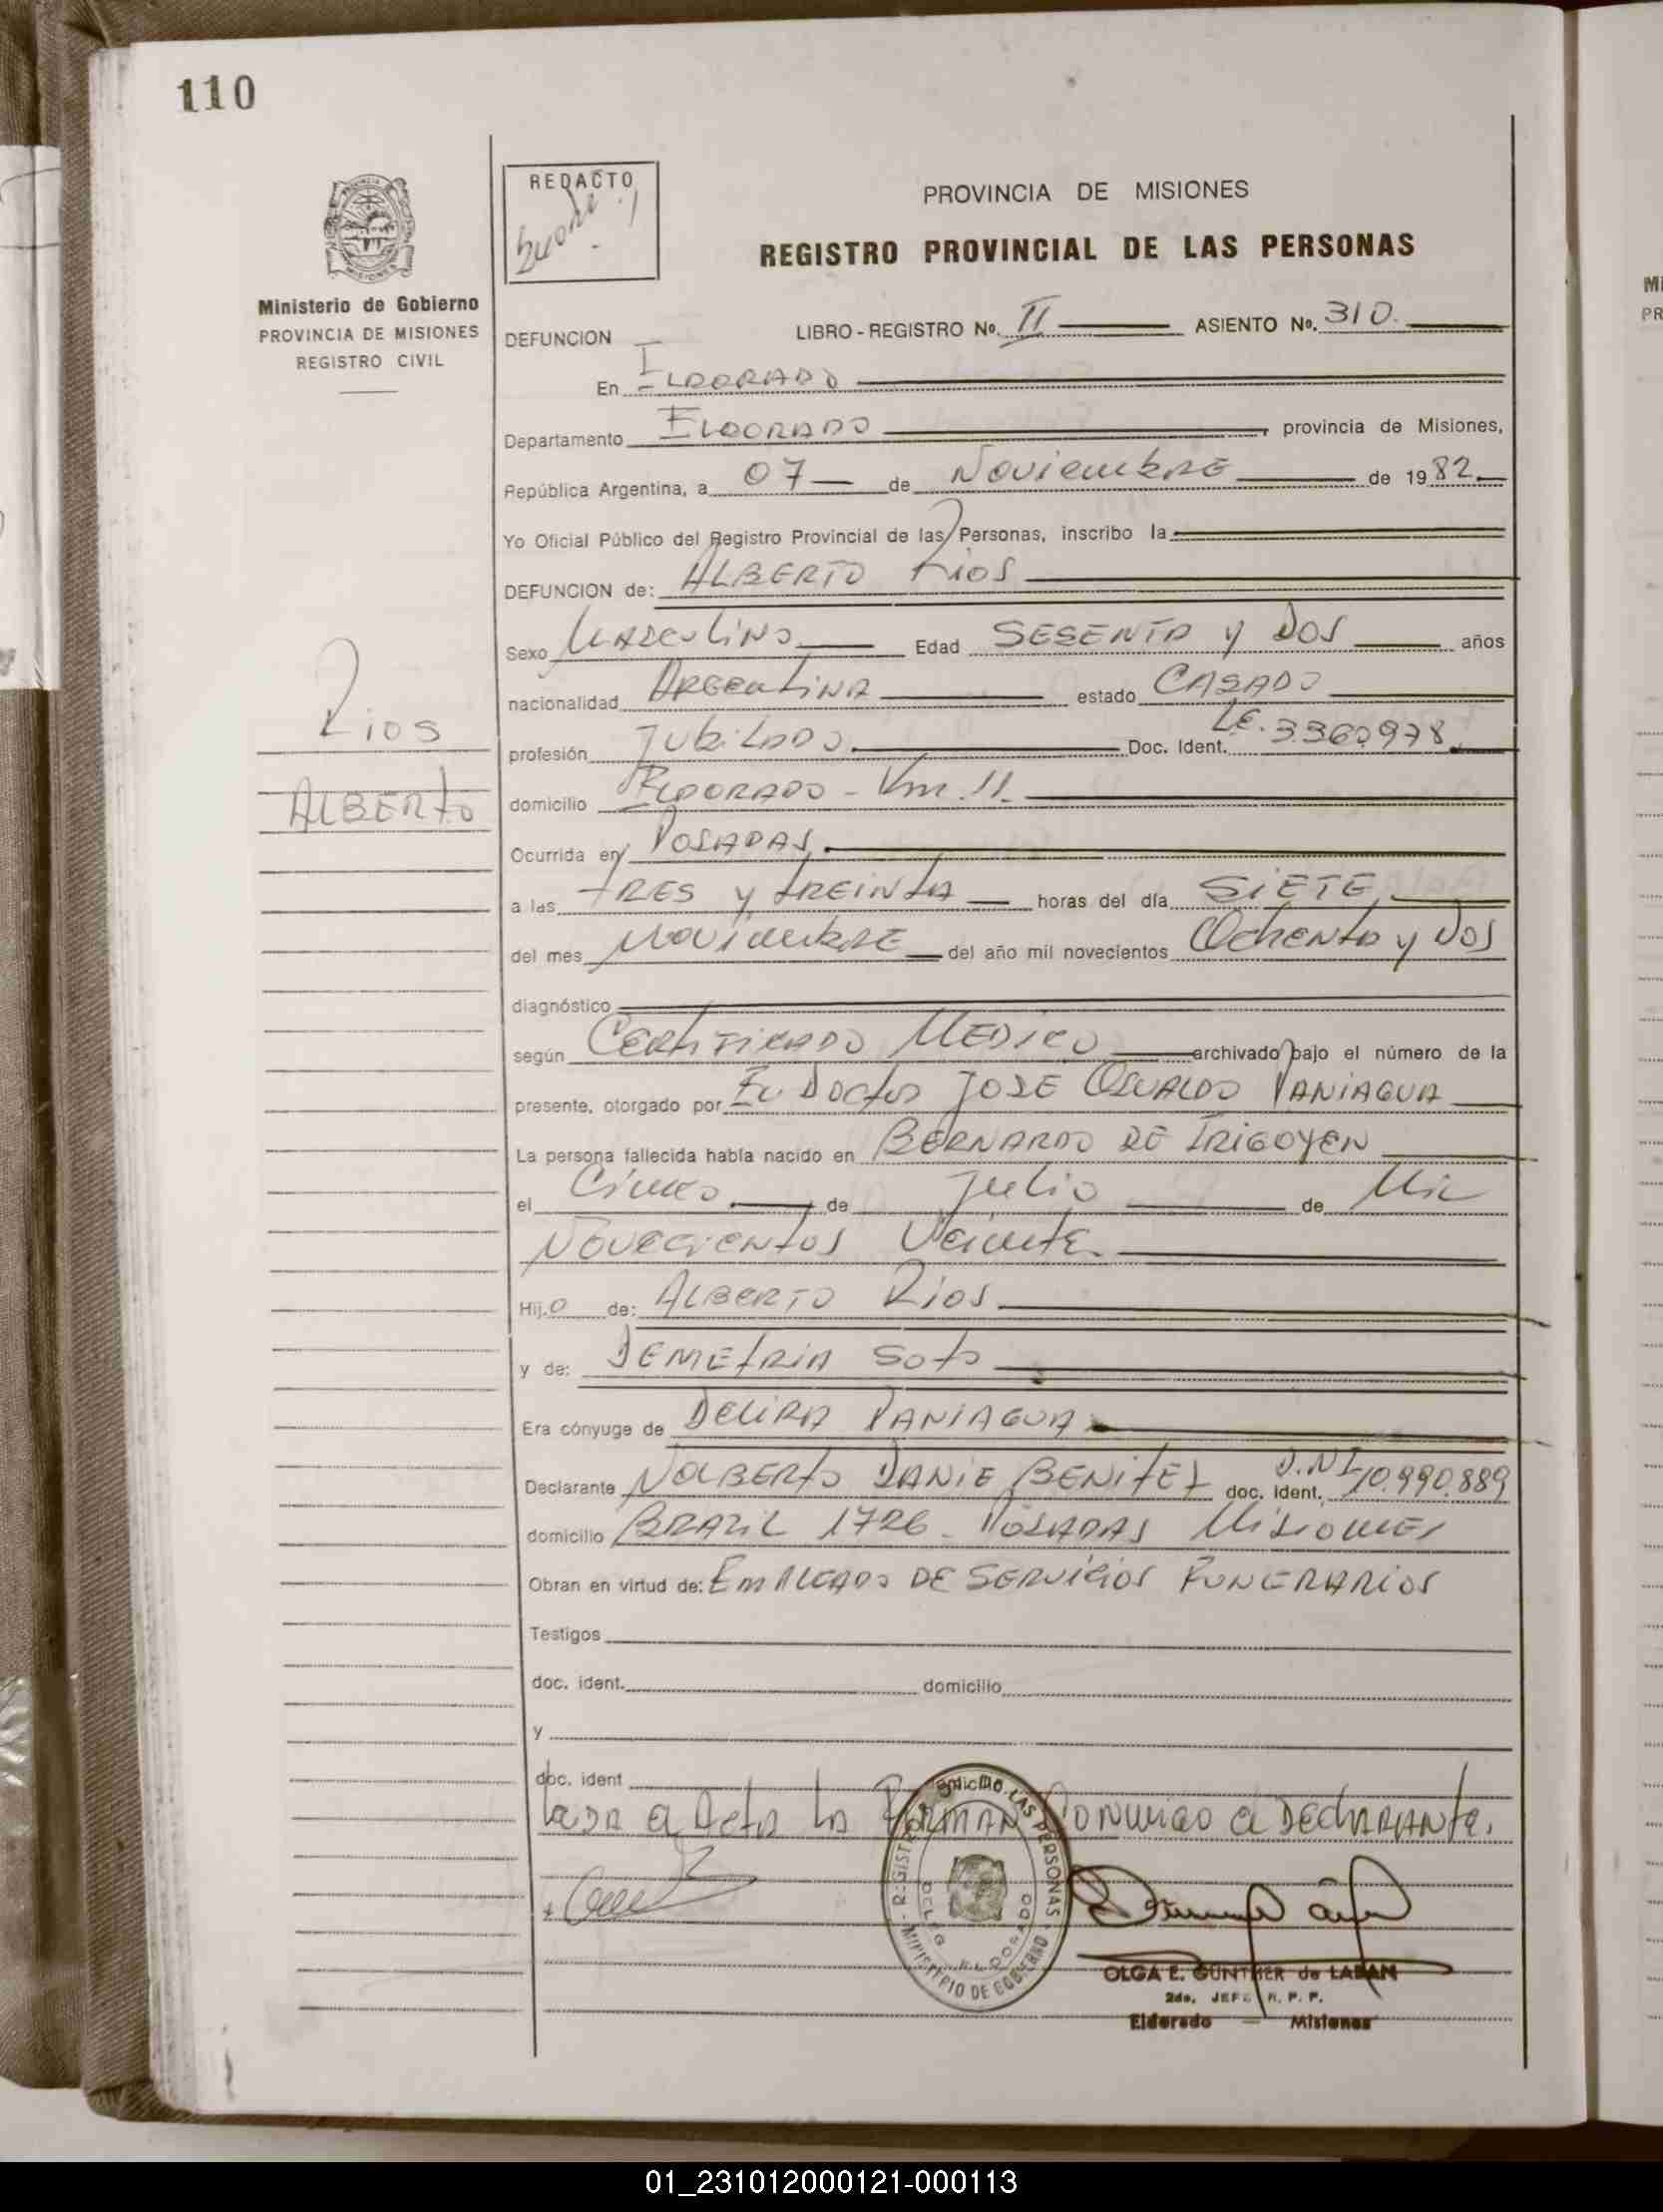 110
REDACTO
PROVINCIA DE MISIONES
REGISTRO PROVINCIAL DE LAS PERSONAS
Ministerio de Gobierno
PROVINCIA DE MISIONES
REGISTRO CIVIL
DEFUNCION LIBRO-REGISTRO No. II ASIENTO No. 310.
En ELDORADO
Departamento ELDORADO, provincia de Misiones,
República Argentina, a 07 de Noviembre de 1982
Yo Oficial Público del Registro Provincial de las Personas, inscribo la
DEFUNCION de: ALBERTO Rios
Sexo Masculino Edad SESENTA y Dos años
nacionalidad Argentina estado CASADO
Rios
profesión Jubilado Doc. Ident. L.E. 3360978
ALBERTO
domicilio ELDORADO - Km. 11.
Ocurrida en POSADAS
a las tRES y treinta horas del día SiETE
del mes Noviembre del año mil novecientos Ochenta y Dos
diagnóstico
según Certificado Medico archivado bajo el número de la
presente, otorgado por El Doctor JOSE OSVALDO PANIAGUA
La persona fallecida había nacido en BERNARDO DE IRIGOYEN
el Cinco de Julio de Mil
Novecientos Veinte
Hijo de: ALBERTO Rios
y de: DEMEtRIA Soto
Era cónyuge de DELIRA PANIAGUA
Declarante NOLBERTO DANIE BENITEZ doc. ident. D.N.I. 10.990.889
domicilio BRAZIL 1726 - POSADAS Misiones
Obran en virtud de: EMPLEADO DE SERVICIOS FUNERARIOS
Testigos
doc. ident. domicilio
y
doc. ident domicilio
el Acta la FIRMAN Conmigo el DECLARANTE.
REGISTRO LAS PERSONAS
MINISTERIO DE GOBIERNO
ELDORADO
OLGA E. GÜNTHER de LABAN
2do. JEFE R. P. P.
Eldorado — Misiones
01_231012000121-000113